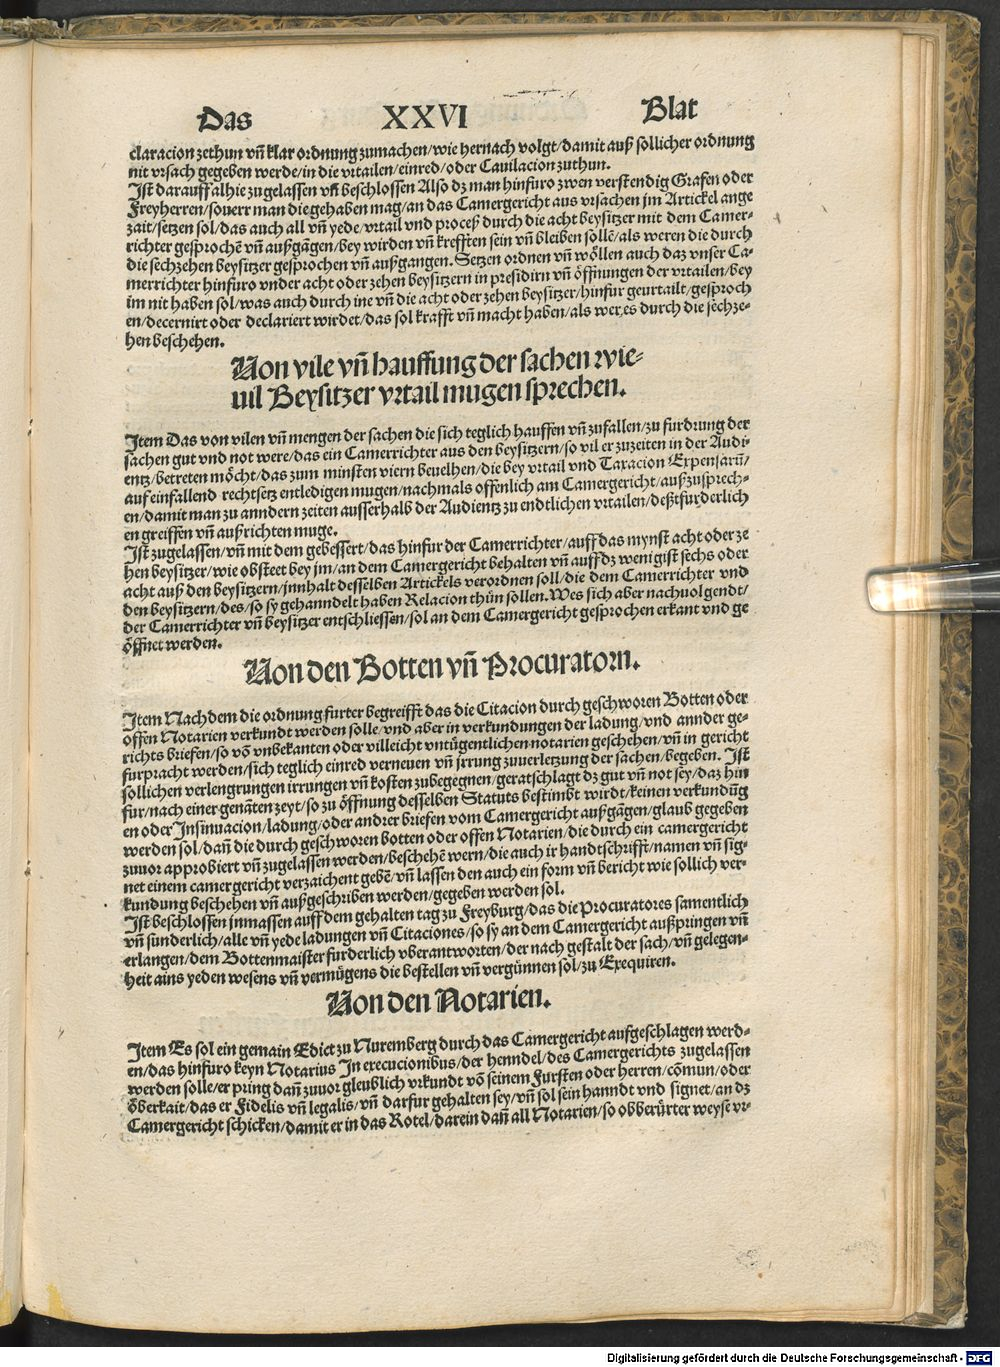 Das XXVI Blat
claracion zethun vñ klar ordnung zumachen/wie hernach volgt/damit auß sollicher ordnung
nit vrsach gegeben werde/in die vrtailen/einred/oder Cauilacion zuthun.
Ist darauff alhie zugelassen vñ beschlossen Also dz man hinfuro zwen verstendig Grafen oder
Freyherren/souerr man die gehaben mag/an das Camergericht aus vrsachen jm Artickel ange
zait/setzen sol/das auch all vñ yede/vrtail vnd proceß durch die acht beysitzer mit dem Camer-
richter gesprochẽ vñ außgãgen/bey wirden vñ krefften sein vñ bleiben sollẽ/als weren die durch
die sechzehen beysitzer gesprochen vñ außgangen. Setzen ordnen vñ wöllen auch daz vnser Ca-
merrichter hinfuro vnder acht oder zehen beysitzern in presidirn vñ öffnungen der vrtailen/bey
im nit haben sol/was auch durch ine vñ die acht oder zehen beysitzer/hinfur geurtailt/gesproch
en/decernirt oder declariert wirdet/das sol krafft vñ macht haben/als wer es durch die sechze-
hen beschehen.
Von vile vñ hauffung der sachen wie-
uil Beysitzer vrtail mugen sprechen.
Item Das von vilen vñ mengen der sachen die sich teglich hauffen vñ zufallen/zu furdrung der
sachen gut vnd not were/das ein Camerrichter aus den beysitzern/so vil er zuzeiten in der Audi
entz/betreten möcht/das zum minsten viern beuelhen/die bey vrtail vnd Taxacion Expensarũ/
auf einfallend rechtsetz entledigen mugen/nachmals offenlich am Camergericht/außzusprech-
en/damit man zu anndern zeiten ausserhalb der Audientz zu endtlichen vrtailen/deßtfurderlich
en greiffen vñ außrichten muge.
Ist zugelassen/vñ mit dem gebessert/das hinfur der Camerrichter/auff das mynst acht oder ze
hen beysitzer/wie obsteet bey jm/an dem Camergericht behalten vñ auff dz wenigist sechs oder
acht auß den beysitzern/jnnhalt desselben Artickels verordnen soll/die dem Camerrichter vnd
den beysitzern/des/so sy gehanndelt haben Relacion thün sollen. Wes sich aber nachuolgendt/
der Camerrichter vñ beysitzer entschliessen/sol an dem Camergericht gesprochen erkant vnd ge
öffnet werden.
Von den Botten vñ Procuratorn.
Item Nachdem die ordnung furter begreifft das die Citacion durch geschworen Botten oder
offen Notarien verkundt werden solle/vnd aber in verkundungen der ladung/vnd annder ge-
richts briefen/so võ vnbekanten oder villeicht vntügentlichen notarien geschehen/vñ in gericht
furpracht werden/sich teglich einred verneuen vñ jrrung zuuerletzung der sachen/begeben. Ist
sollichen verlengrungen irrungen vñ kosten zubegegnen/geratschlagt dz gut vñ not sey/daz hin
fur/nach einer genãten zeyt/so zu öffnung desselben Statuts bestimbt wirdt/keinen verkundũg
en oder Insinuacion/ladung/oder andrer briefen vom Camergericht außgãgen/glaub gegeben
werden sol/dañ die durch geschworen botten oder offen Notarien/die durch ein camergericht
zuuor approbiert vñ zugelassen werden/beschehẽ wern/die auch ir handtschrifft/namen vñ sig-
net einem camergericht verzaichent gebẽ/vñ lassen den auch ein form vñ bericht wie sollich ver-
kundung beschehen vñ außgeschriben werden/gegeben werden sol.
Ist beschlossen jnmassen auff dem gehalten tag zu Freyburg/das die Procuratores samentlich
vñ sunderlich/alle vñ yede ladungen vñ Citaciones/so sy an dem Camergericht außpringen vñ
erlangen/dem Bottenmaister furderlich vberantworten/der nach gestalt der sach/vñ gelegen-
heit ains yeden wesens vñ vermügens die bestellen vñ vergünnen sol/zu Exequiren.
Von den Notarien.
Item Es sol ein gemain Edict zu Nuremberg durch das Camergericht aufgeschlagen werd-
en/das hinfuro keyn Notarius In execucionibus/der henndel/des Camergerichts zugelassen
werden solle/er pring dañ zuuor gleublich vrkundt võ seinem Fursten oder herren/cõmun/oder
öberkait/das er Fidelis vñ legalis/vñ darfur gehalten sey/vñ sol sein hanndt vnd signet/an dz
Camergericht schicken/damit er in das Rotel/darein dañ all Notarien/so obberürter weyse vr-
Digitalisierung gefördert durch die Deutsche Forschungsgemeinschaft - DFG